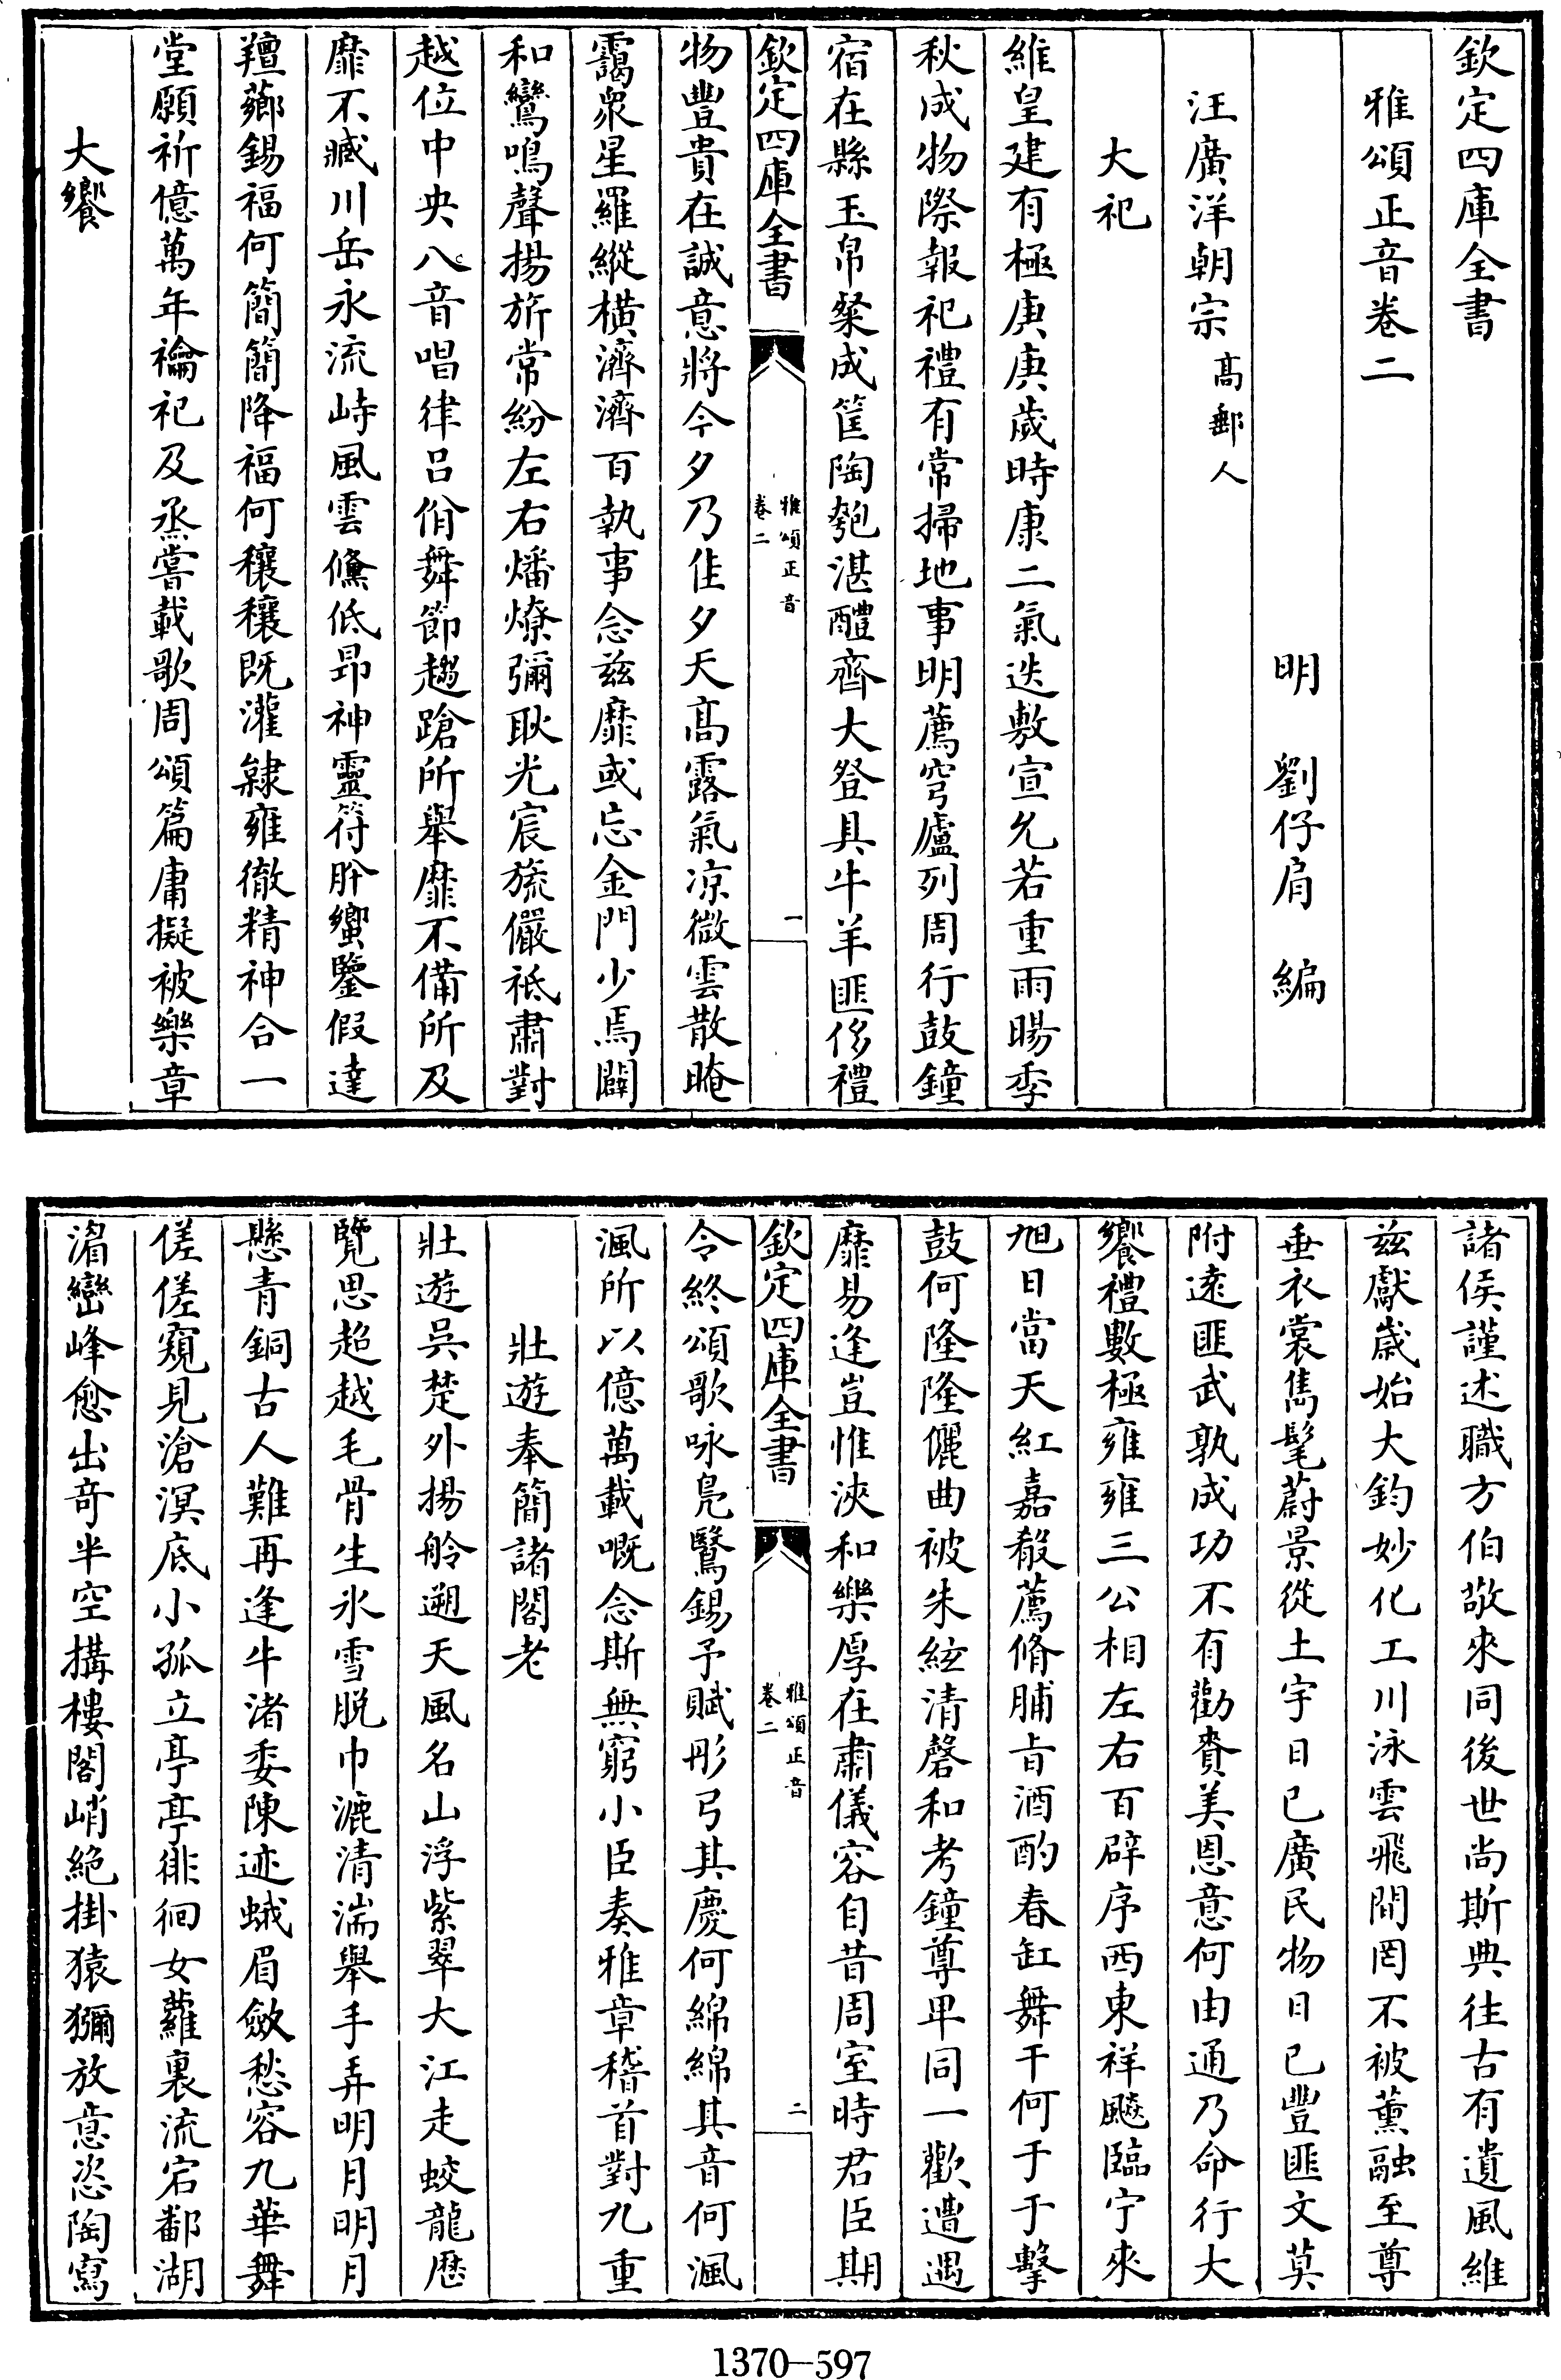 欽定四庫全書
雅頌正音卷二
明　劉仔肩　編
汪廣洋朝宗高郵人
大祀
維皇建有極庚庚歲時康二氣迭敷宣允若重雨暘季
秋成物際報祀禮有常掃地事明薦穹廬列周行鼓鐘
宿在縣玉帛粲成筐陶匏湛醴齊大登具牛羊匪侈禮
欽定四庫全書
雅頌正音
卷二
一
物豐貴在誠意將今夕乃隹夕天高露氣凉微雲散晻
靄衆星羅縱橫濟濟百執事念兹靡或忘金門少焉闢
和鸞鳴聲揚旂常紛左右燔燎彌耿光宸旒儼祗肅對
越位中央八音唱律吕佾舞節趨蹌所舉靡不備所及
靡不臧川岳永流峙風雲儵低昻神靈符肸蠁鑒假達
羶薌錫福何簡簡降福何穰穰既灌隷雍徹精神合一
堂願祈億萬年禴祀及烝嘗載歌周頌篇庸擬被樂章
大饗
諸侯謹述職方伯敬來同後世尚斯典往古有遺風維
兹獻歲始大鈞妙化工川泳雲飛間罔不被薰融至尊
垂衣裳雋髦蔚景從土宇日已廣民物日已豐匪文莫
附逺匪武孰成功不有勸賚美恩意何由通乃命行大
饗禮數極雍雍三公相左右百辟序西東祥飈臨宁來
旭日當天紅嘉殽薦脩脯㫖酒酌春缸舞干何于于擊
鼓何隆隆儷曲被朱絃清磬和考鐘尊卑同一歡遭遇
靡易逢豈惟浹和樂厚在肅儀容自昔周室時君臣期
欽定四庫全書
雅頌正音
卷二
二
令終頌歌咏鳧鷖錫予賦彤弓其慶何綿綿其音何渢
渢所以億萬載嘅念斯無窮小臣奏雅章稽首對九重
壯遊奉簡諸閣老
壯遊吳楚外揚舲遡天風名山浮紫翠大江走蛟龍歴
覽思超越毛骨生氷雪脱巾漉清湍舉手弄明月明月
懸青銅古人難再逢牛渚委陳迹蛾眉斂愁容九華舞
傞傞窺見滄溟底小孤立亭亭徘徊女蘿裏流宕鄱湖
湄巒峰愈出竒半空搆樓閣峭絶掛猿獼放意恣陶寫
1370—597